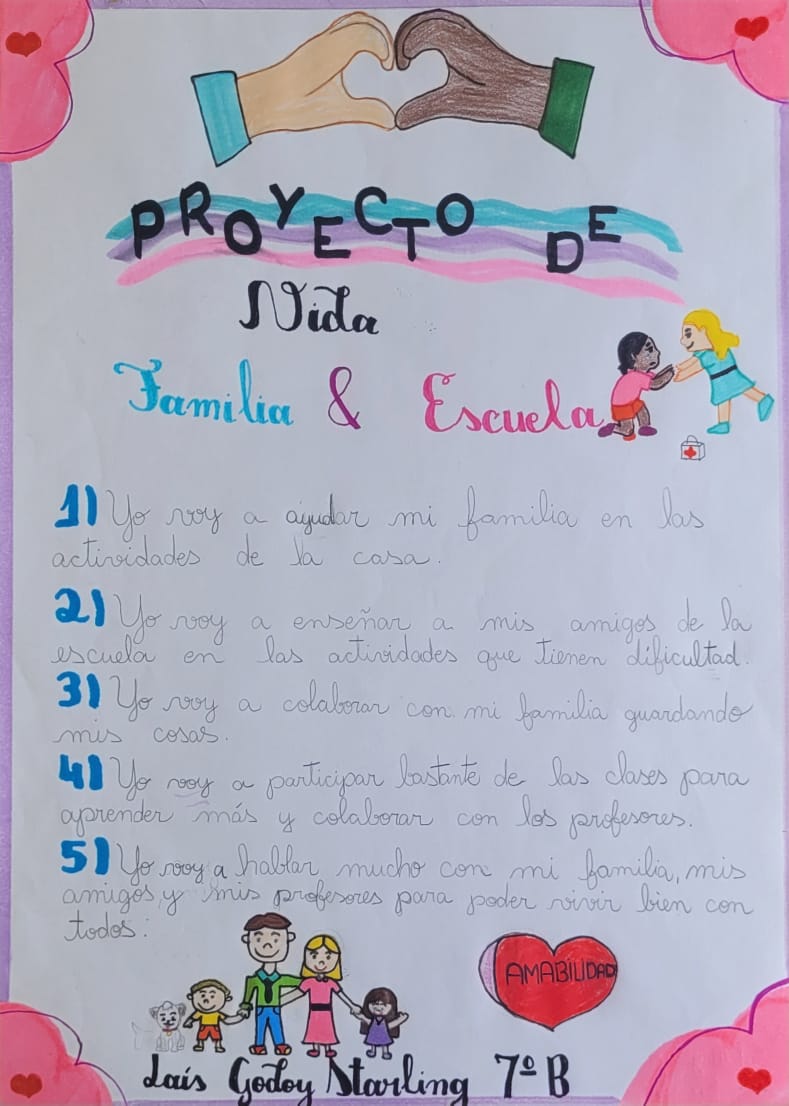 PROYECTO DE
Vida
Familia & Escuela
1) Yo voy a ayudar mi familia en las
actividades de la casa.
2) Yo voy a enseñar a mis amigos de la
escuela en las actividades que tienen dificultad.
3) Yo voy a colaborar con mi familia guardando
mis cosas.
4) Yo voy a participar bastante de las clases para
aprender más y colaborar con los profesores.
5) Yo voy a hablar mucho con mi familia, mis
amigos y mis profesores para poder vivir bien con
todos.
AMABILIDAD
Laís Godoy Starling 7º B